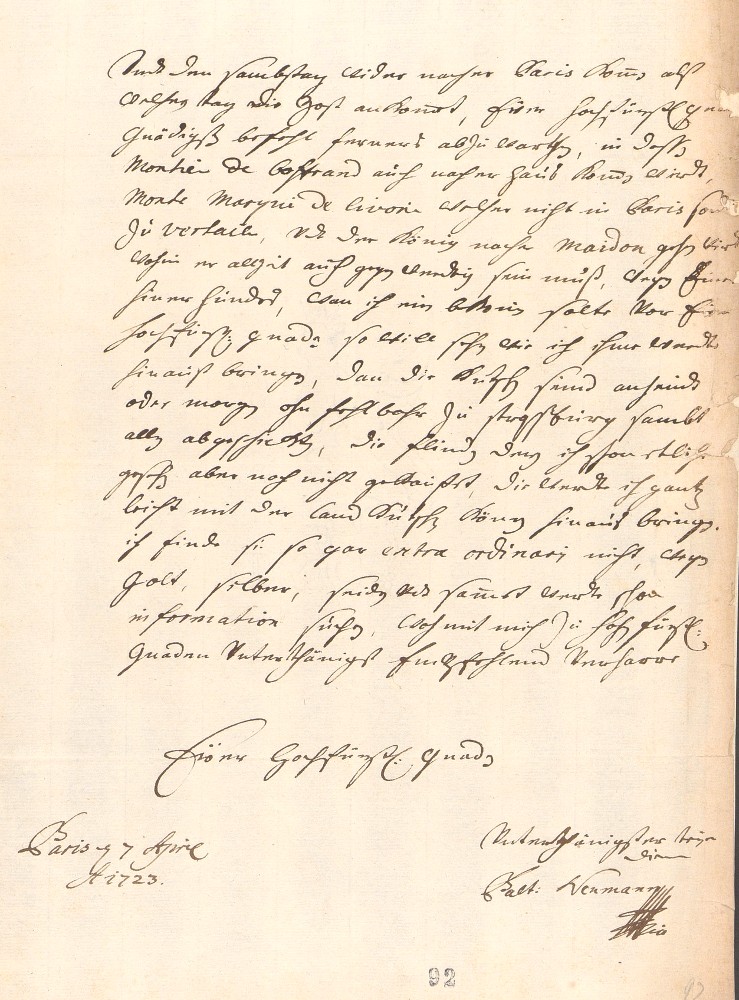 Undt den sambstag wider nacher Paris komme alß
welchen tag die Post ankombt, Eüer hochfürstl. gnaden
gnädigst befehl ferners abzuwarthen, in dessen
Montier de boffrand auch nacher hauß komen wirdt,
Monte Marqui de livorie welcher nicht in Paris
Zu versaile, undt der König nache Maidon gehen wirdt
wohin er allzeit auch gegen wendig sein muß, wegen
ich ein solte vor
hochfürstl: gnaden so will sehen wie ich ihme werdte
hinauß bringen, dan die Kutschen seind anheudt
oder morgen ohnfehlbahr zu strasburg sambt
allen abgeschickten, die flinden
gesehen aber noch nicht gekauffet, die werdte ich gantz
leicht mit der land Kutschen können hinauß bringen.
ich finde sie so gar extra ordinari nicht, wegen
golt, silber, seiden undt sammet werdte schon
information suchen, wohmit mich zu hochfürstl:
gnaden unterthänigst Empfehlend verharre
Eüer Hochfürstl: gnaden
Paris 7 April
A 1723.
Unterthänigster
Balt: Neumann
92